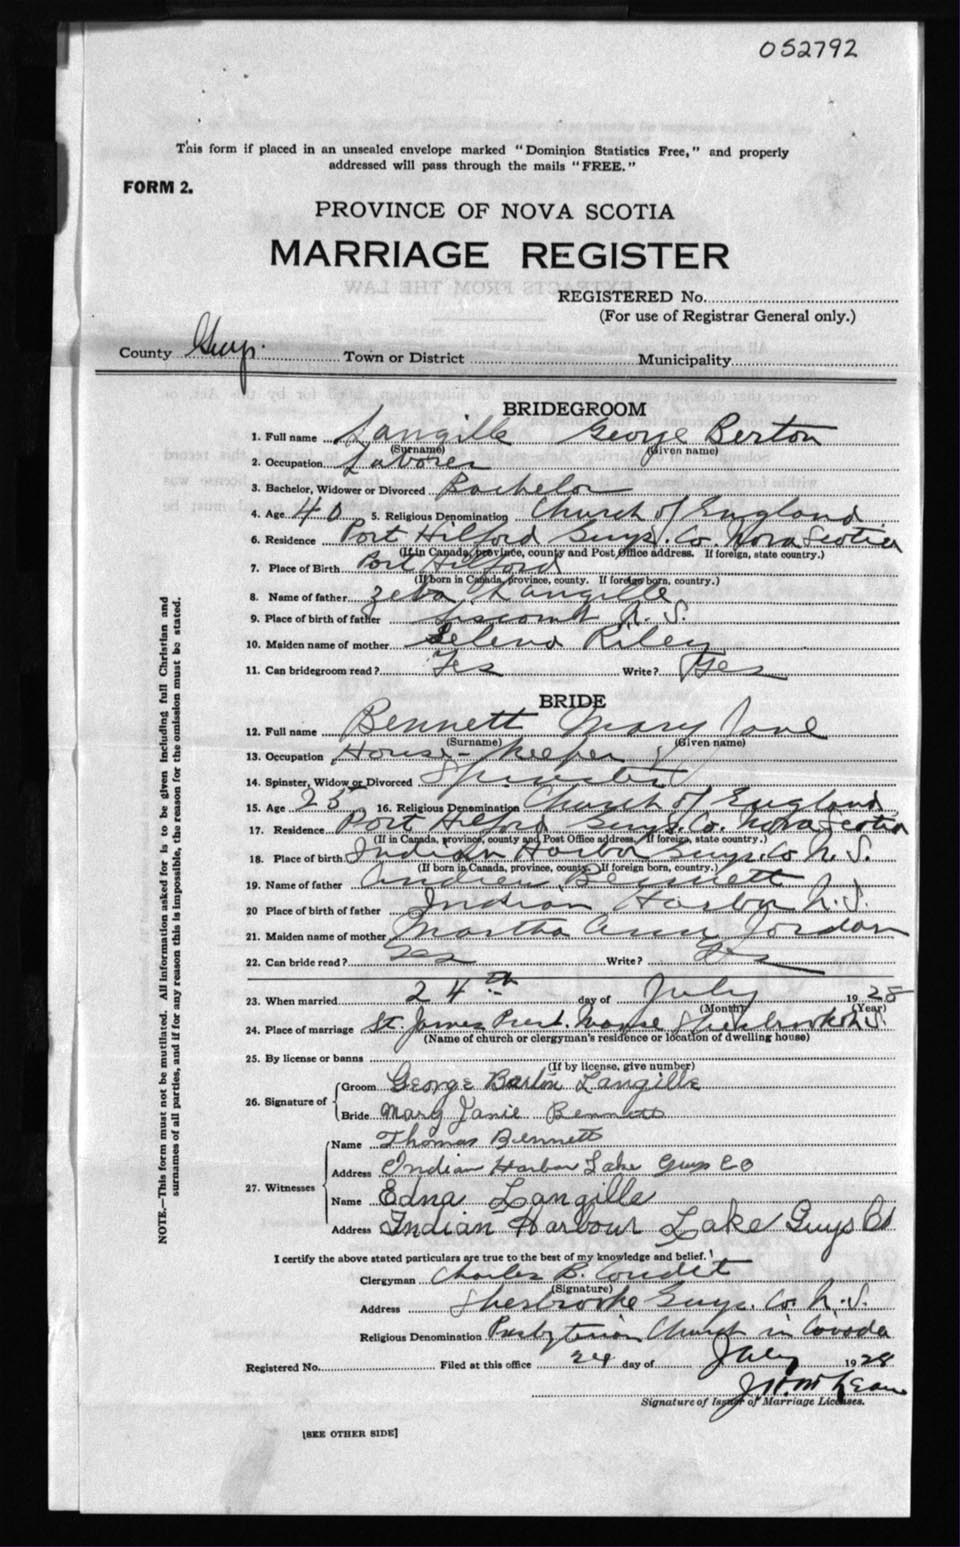 052792
This form if placed in an unsealed envelope marked "Dominion Statistics Free," and properly
addressed will pass through the mails "FREE."
FORM 2.
PROVINCE OF NOVA SCOTIA
MARRIAGE REGISTER
EXTRACTS FROM THE LAW
REGISTERED No.
(For use of Registrar General only.)
County Guys. Town or District Municipality
BRIDEGROOM
1. Full name Langille George Berton
(Surname) (Given name)
2. Occupation Laborer
3. Bachelor, Widower or Divorced Bachelor
4. Age 40 5. Religious Denomination Church of England
6. Residence Port Hilford Guys. Co. Nova Scotia
(If in Canada, province, county and Post Office address. If foreign, state country.)
7. Place of Birth Port Hilford
(If born in Canada, province, county. If foreign born, country.)
8. Name of father Zeba Langille
9. Place of birth of father Liscomb N.S.
10. Maiden name of mother Selena Riley
11. Can bridegroom read? Yes Write? Yes
BRIDE
12. Full name Bennett Mary Jane
(Surname) (Given name)
13. Occupation House-keeper
14. Spinster, Widow or Divorced Spinster
15. Age 25 16. Religious Denomination Church of England
17. Residence Port Hilford Guys. Co. Nova Scotia
(If in Canada, province, county and Post Office address. If foreign, state country.)
18. Place of birth Indian Harbor Guys. Co N.S.
(If born in Canada, province, county. If foreign born, country.)
19. Name of father Andrew Bennett
20 Place of birth of father Indian Harbor N.S.
21. Maiden name of mother Martha Ann Jordan
22. Can bride read? Yes Write? Yes
23. When married 24th day of July 1928
(Month) (Year)
24. Place of marriage St. James Presb. Manse Sherbrooke N.S.
(Name of church or clergyman's residence or location of dwelling house)
25. By license or banns
(If by license, give number)
26. Signature of
Groom George Barton Langille
Bride Mary Janie Bennett
27. Witnesses
Name Thomas Bennett
Address Indian Harbor Lake Guys Co
Name Edna Langille
Address Indian Harbour Lake Guys Co
I certify the above stated particulars are true to the best of my knowledge and belief.
Clergyman Charles B.
(Signature)
Address Sherbrooke Guys. Co. N.S.
Religious Denomination Presbyterian Church in Canada
Registered No. Filed at this office 24 day of July 1928
Signature of Issuer of Marriage Licenses.
[SEE OTHER SIDE]
NOTE.—This form must not be mutilated. All information asked for is to be given including full Christian and
surnames of all parties, and if for any reason this is impossible, the reason for the omission must be stated.